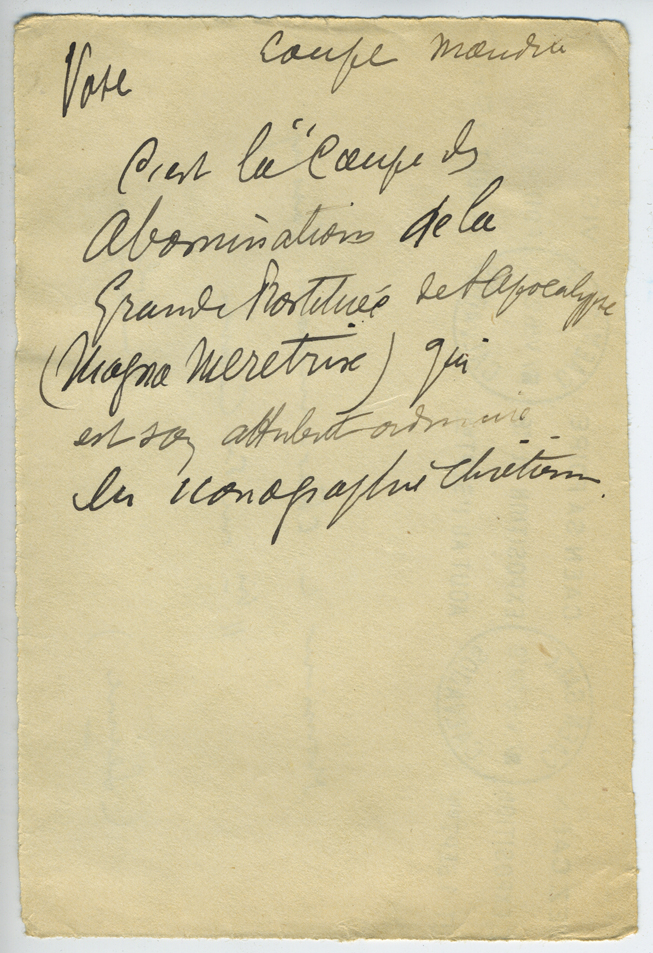 coupe maudite
Note
C'est la "Coupe des
Abominations de la
Grande Prostituée de l'Apocalypse
(Magna Meretrix) qui
est son attribut ordinaire
en iconographie chrétienne.